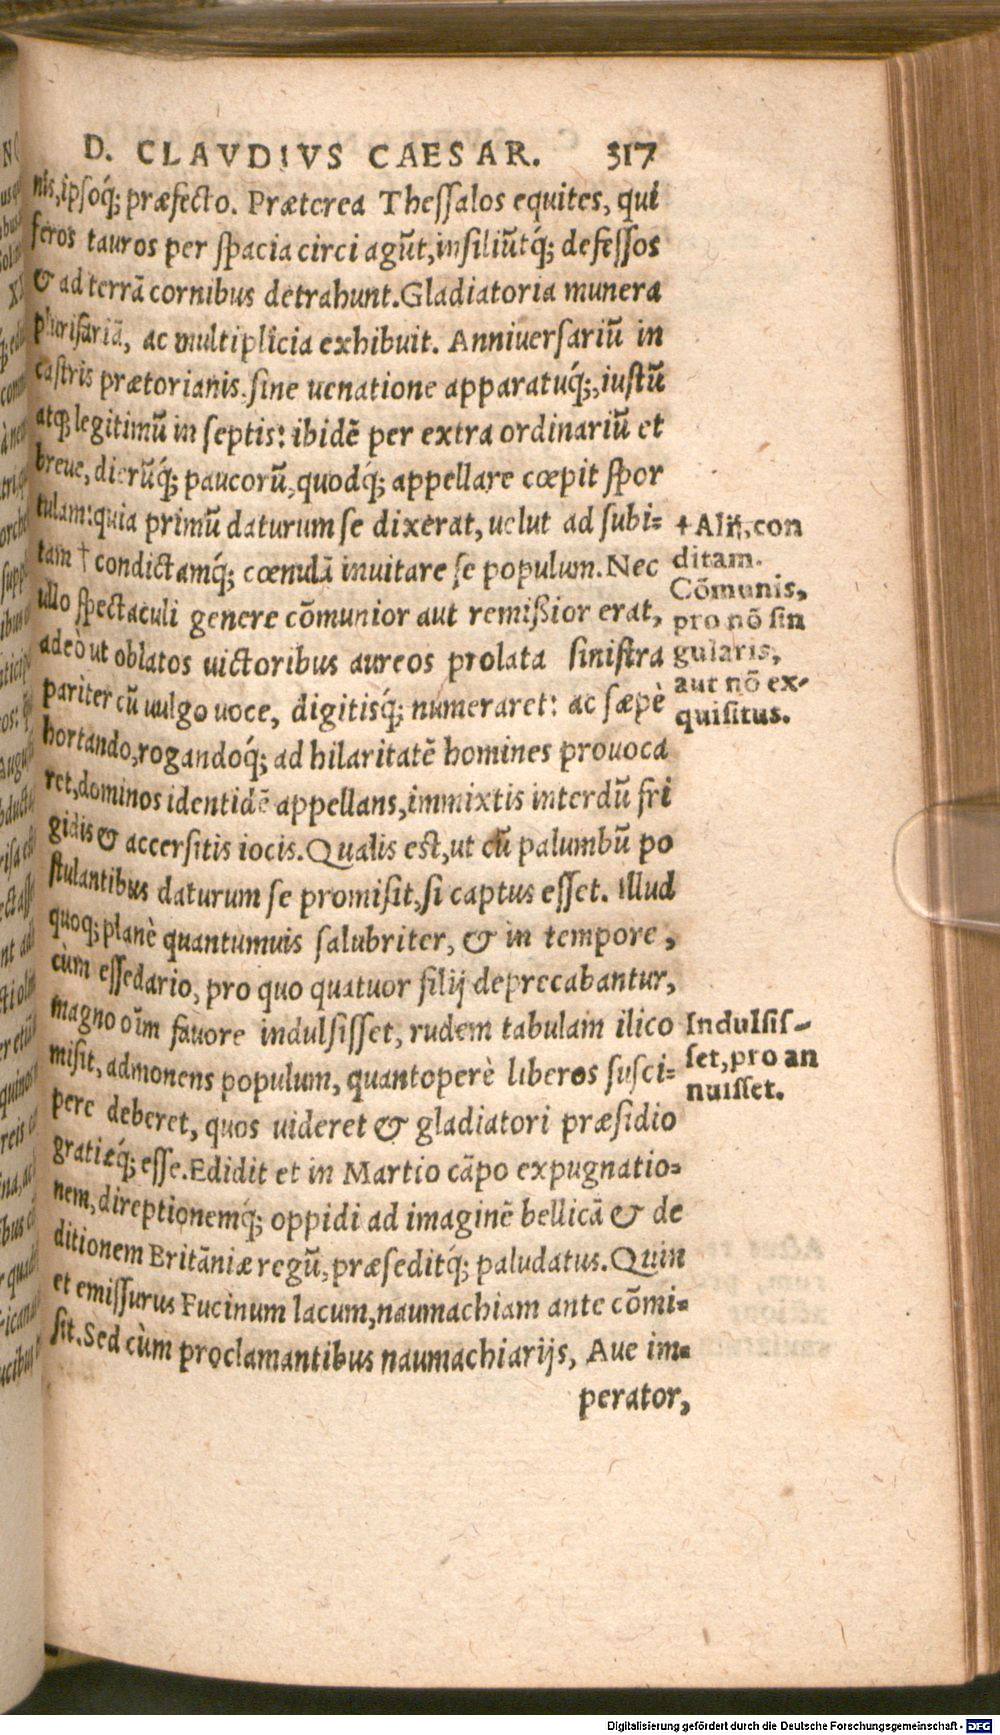 D. CLAVDIVS CAESAR. 317
nis, ipsoq́; præfecto. Præterea Thessalos equites, qui
feros tauros per spacia circi agũt, insiliũtq́; defessos
& ad terrã cornibus detrahunt. Gladiatoria munera
plurifariã, ac multiplicia exhibuit. Anniuersariũ in
castris prætorianis. sine uenatione apparatuq́;, iustũ
atq; legitimũ in septis: ibidẽ per extra ordinariũ et
breue, dierũq́; paucorũ, quodq́; appellare cœpit spor
tulam: quia primũ daturum se dixerat, uelut ad subi-
tam † condictamq́; cœnulã inuitare se populum. Nec
ullo spectaculi genere cõmunior aut remißior erat,
adeò ut oblatos uictoribus aureos prolata sinistra
pariter cũ uulgo uoce, digitisq́; numeraret: ac sæpè
hortando, rogandoq́; ad hilaritatẽ homines prouoca
ret, dominos identidẽ appellans, immixtis interdũ fri
gidis & accersitis iocis. Qualis est, ut cũ palumbũ po
stulantibus daturum se promisit, si captus esset. Illud
quoq; planè quantumuis salubriter, & in tempore,
cùm essedario, pro quo quatuor filij deprecabantur,
magno oĩm fauore indulsisset, rudem tabulam ilico
misit, admonens populum, quantoperè liberos susci-
pere deberet, quos uideret & gladiatori præsidio
gratiæq́; esse. Edidit et in Martio cãpo expugnatio-
nem, direptionemq́; oppidi ad imaginẽ bellicã & de
ditionem Britãniæ regũ, præseditq́; paludatus. Quin
et emissurus Fucinum lacum, naumachiam ante cõmi-
sit. Sed cùm proclamantibus naumachiarijs, Aue im-
perator,
† Alij, con
ditam.
Cõmunis,
pro nõ sin
gularis,
aut nõ ex-
quisitus.
Indulsis-
set, pro an
nuisset.
Digitalisierung gefördert durch die Deutsche Forschungsgemeinschaft - DFG